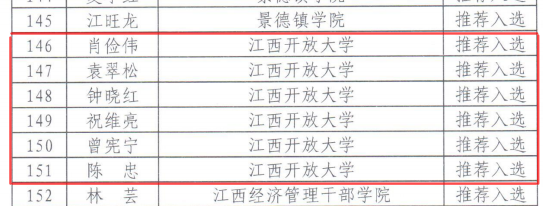 145 江旺龙 景德镇学院 推荐入选
146 肖俭伟 江西开放大学 推荐入选
147 袁翠松 江西开放大学 推荐入选
148 钟晓红 江西开放大学 推荐入选
149 祝维亮 江西开放大学 推荐入选
150 曾宪宁 江西开放大学 推荐入选
151 陈 忠 江西开放大学 推荐入选
152 林 芸 江西经济管理干部学院 推荐入选